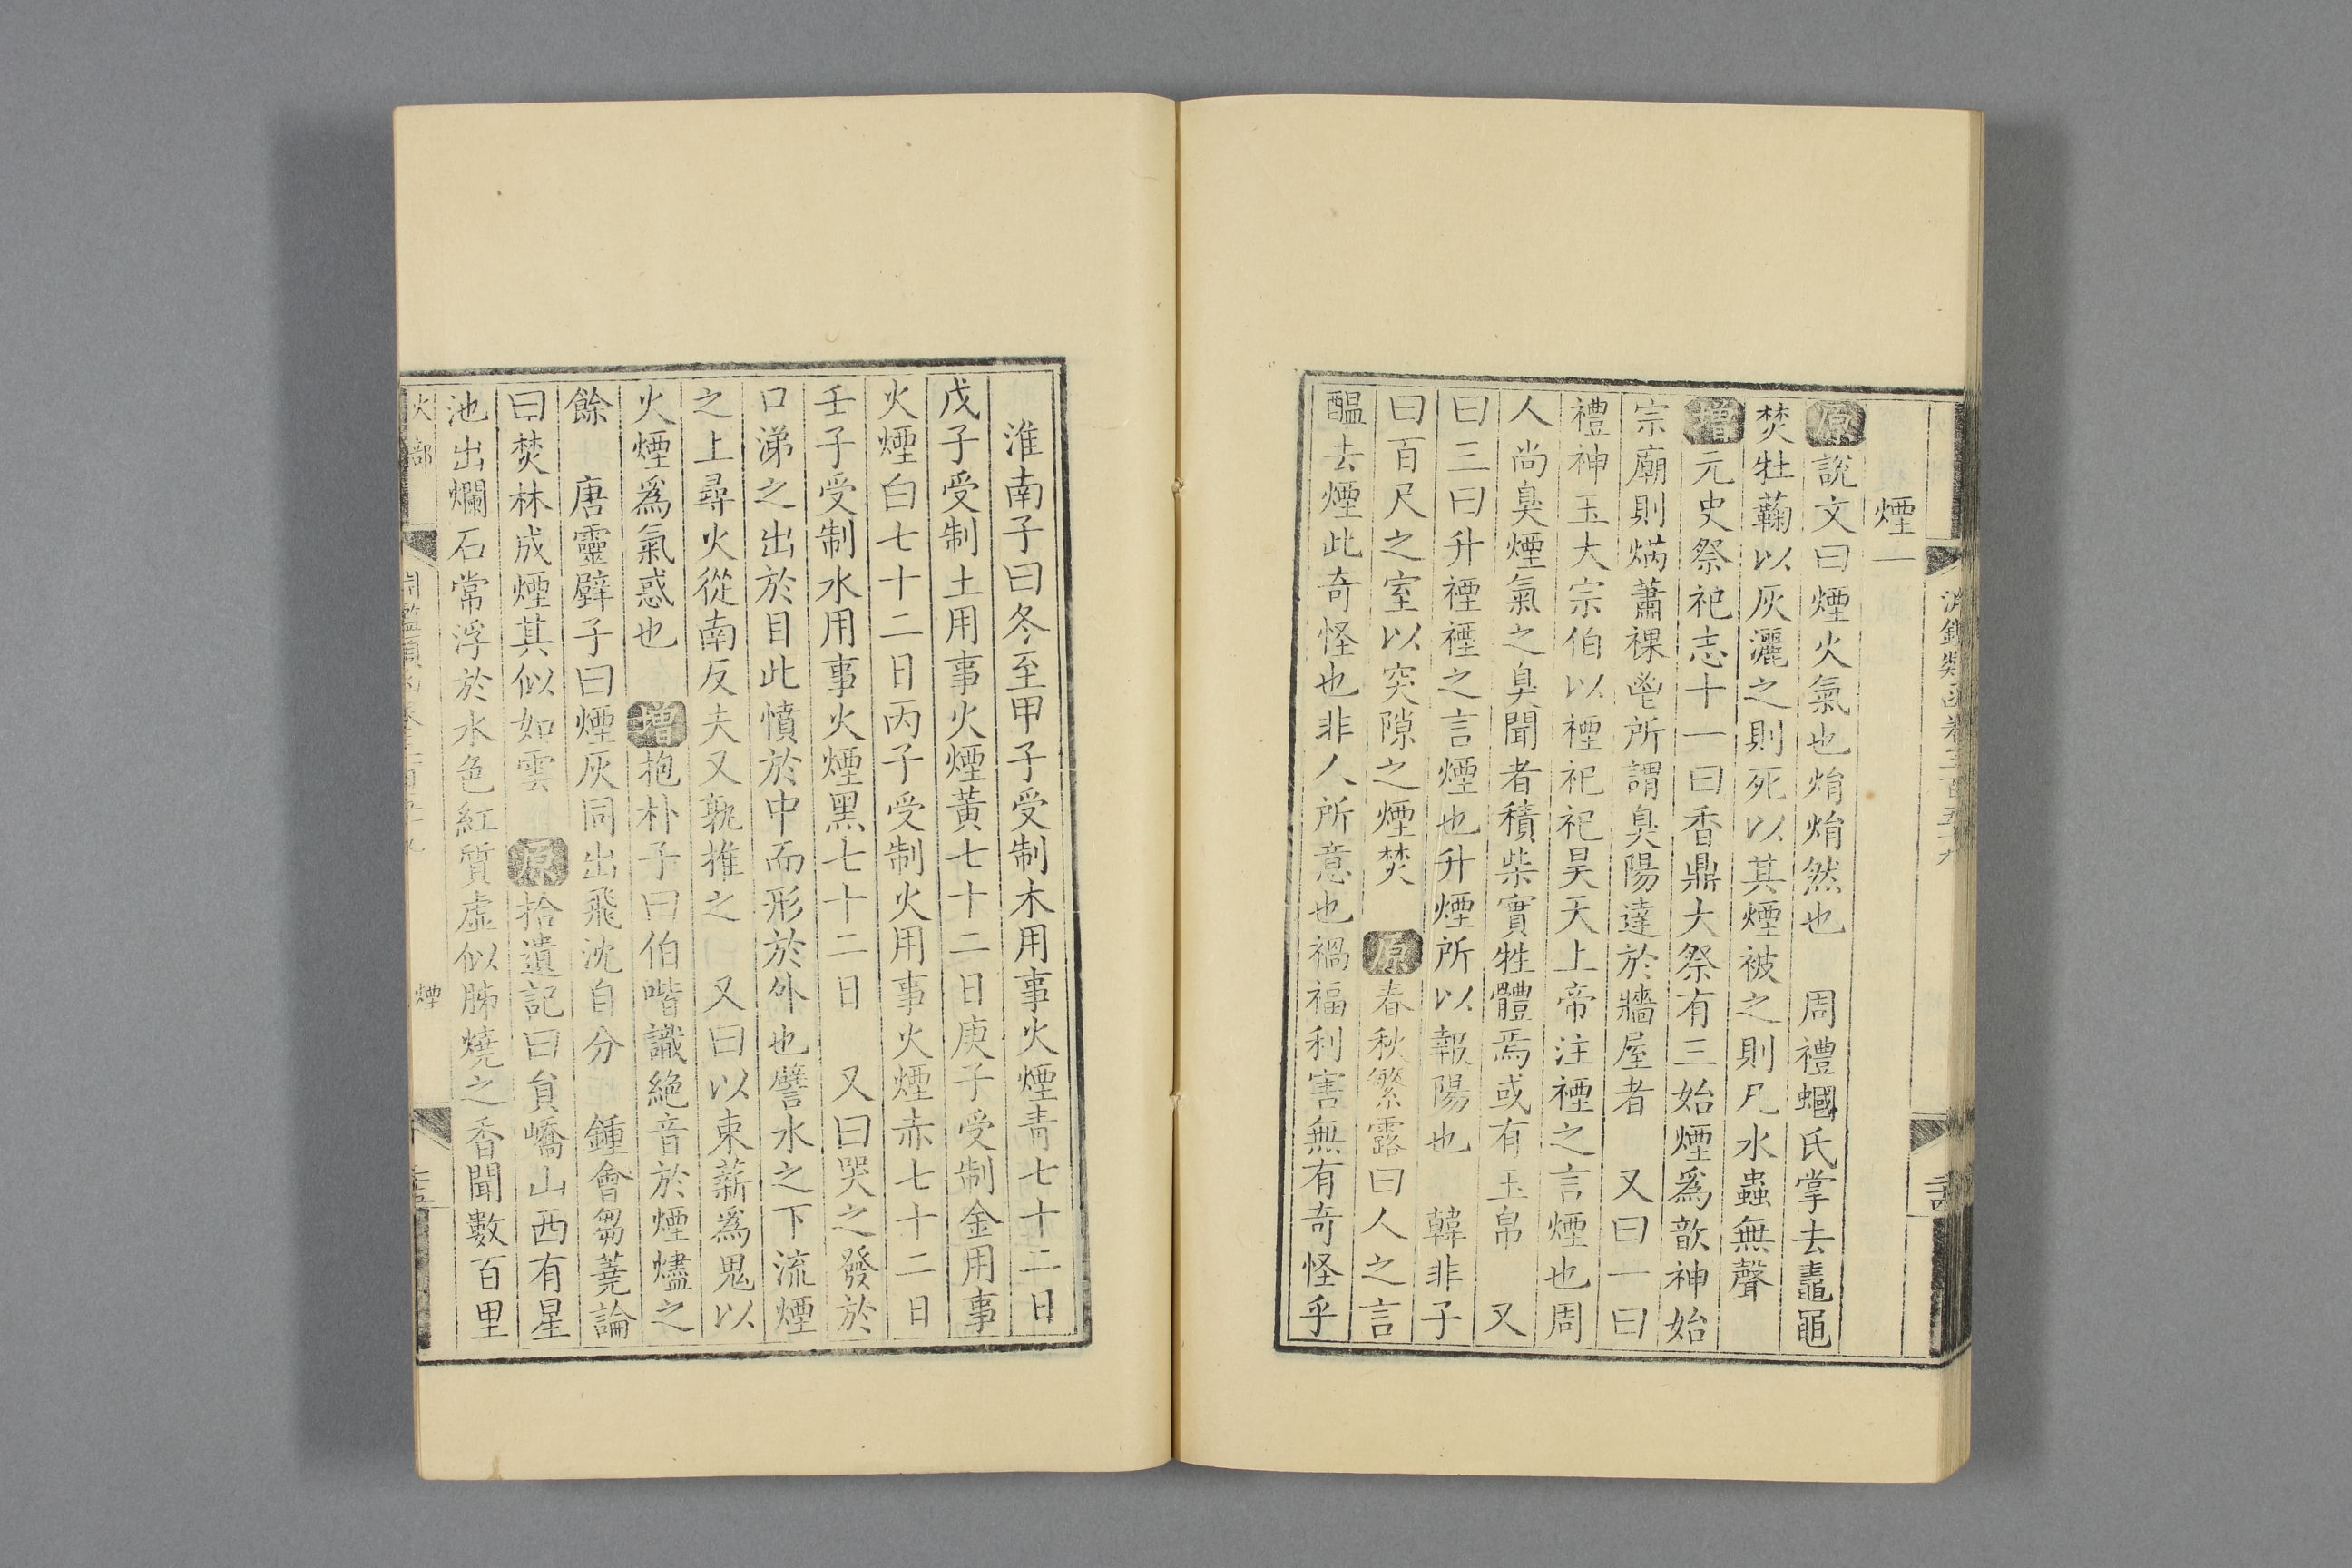 淵鑑類函卷三百五十九
煙一
原說文曰煙火氣也焆焆然也　周禮蟈氏掌去鼃黽
焚牡蘜以灰灑之則死以其煙被之則凡水蟲無聲
增元史祭祀志十一曰香鼎大祭有三始煙爲歆神始
宗廟則焫蕭祼鬯所謂臭陽達於牆屋者　又曰一曰
禮神玉大宗伯以禋祀祀昊天上帝注禋之言煙也周
人尚臭煙氣之臭聞者積柴實牲體焉或有玉帛　又
曰三曰升禋禋之言煙也升煙所以報陽也　韓非子
曰百尺之室以突隙之煙焚　原春秋繁露曰人之言
醞去煙此奇怪也非人所意也禍福利害無有奇怪乎
淮南子曰冬至甲子受制木用事火煙青七十二日
戊子受制土用事火煙黃七十二日庚子受制金用事
火煙白七十二日丙子受制火用事火煙赤七十二日
壬子受制水用事火煙黑七十二日　又曰哭之發於
口涕之出於目此憤於中而形於外也譬水之下流煙
之上尋火從南反夫又孰推之　又曰以束薪爲鬼以
火煙爲氣惑也　增抱朴子曰伯喈識絶音於煙燼之
餘　唐靈壁子曰煙灰同出飛沈自分　鍾會芻蕘論
曰焚林成煙其似如雲　原拾遺記曰貟嶠山西有星
池出爛石常浮於水色紅質虛似肺燒之香聞數百里
火部
煙